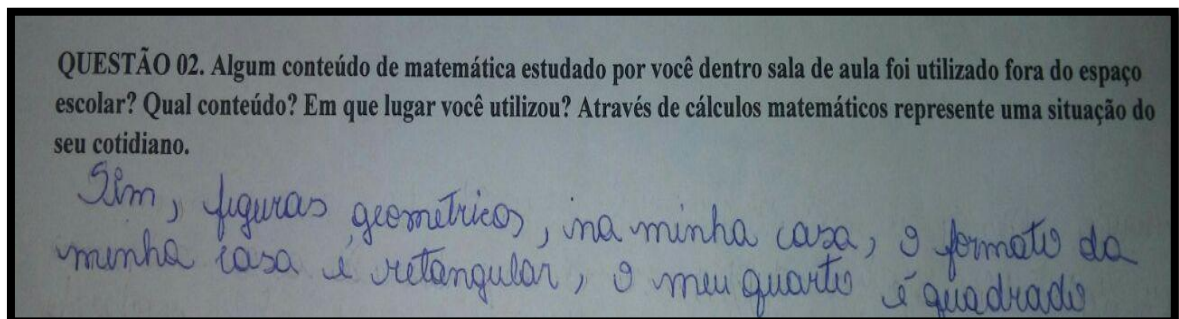 QUESTÃO 02. Algum conteúdo de matemática estudado por você dentro sala de aula foi utilizado fora do espaço
escolar? Qual conteúdo? Em que lugar você utilizou? Através de cálculos matemáticos represente uma situação do
seu cotidiano.
Sim, figuras geometricos, na minha casa, o formato da
minha casa é retangular, o meu quarto é quadrado